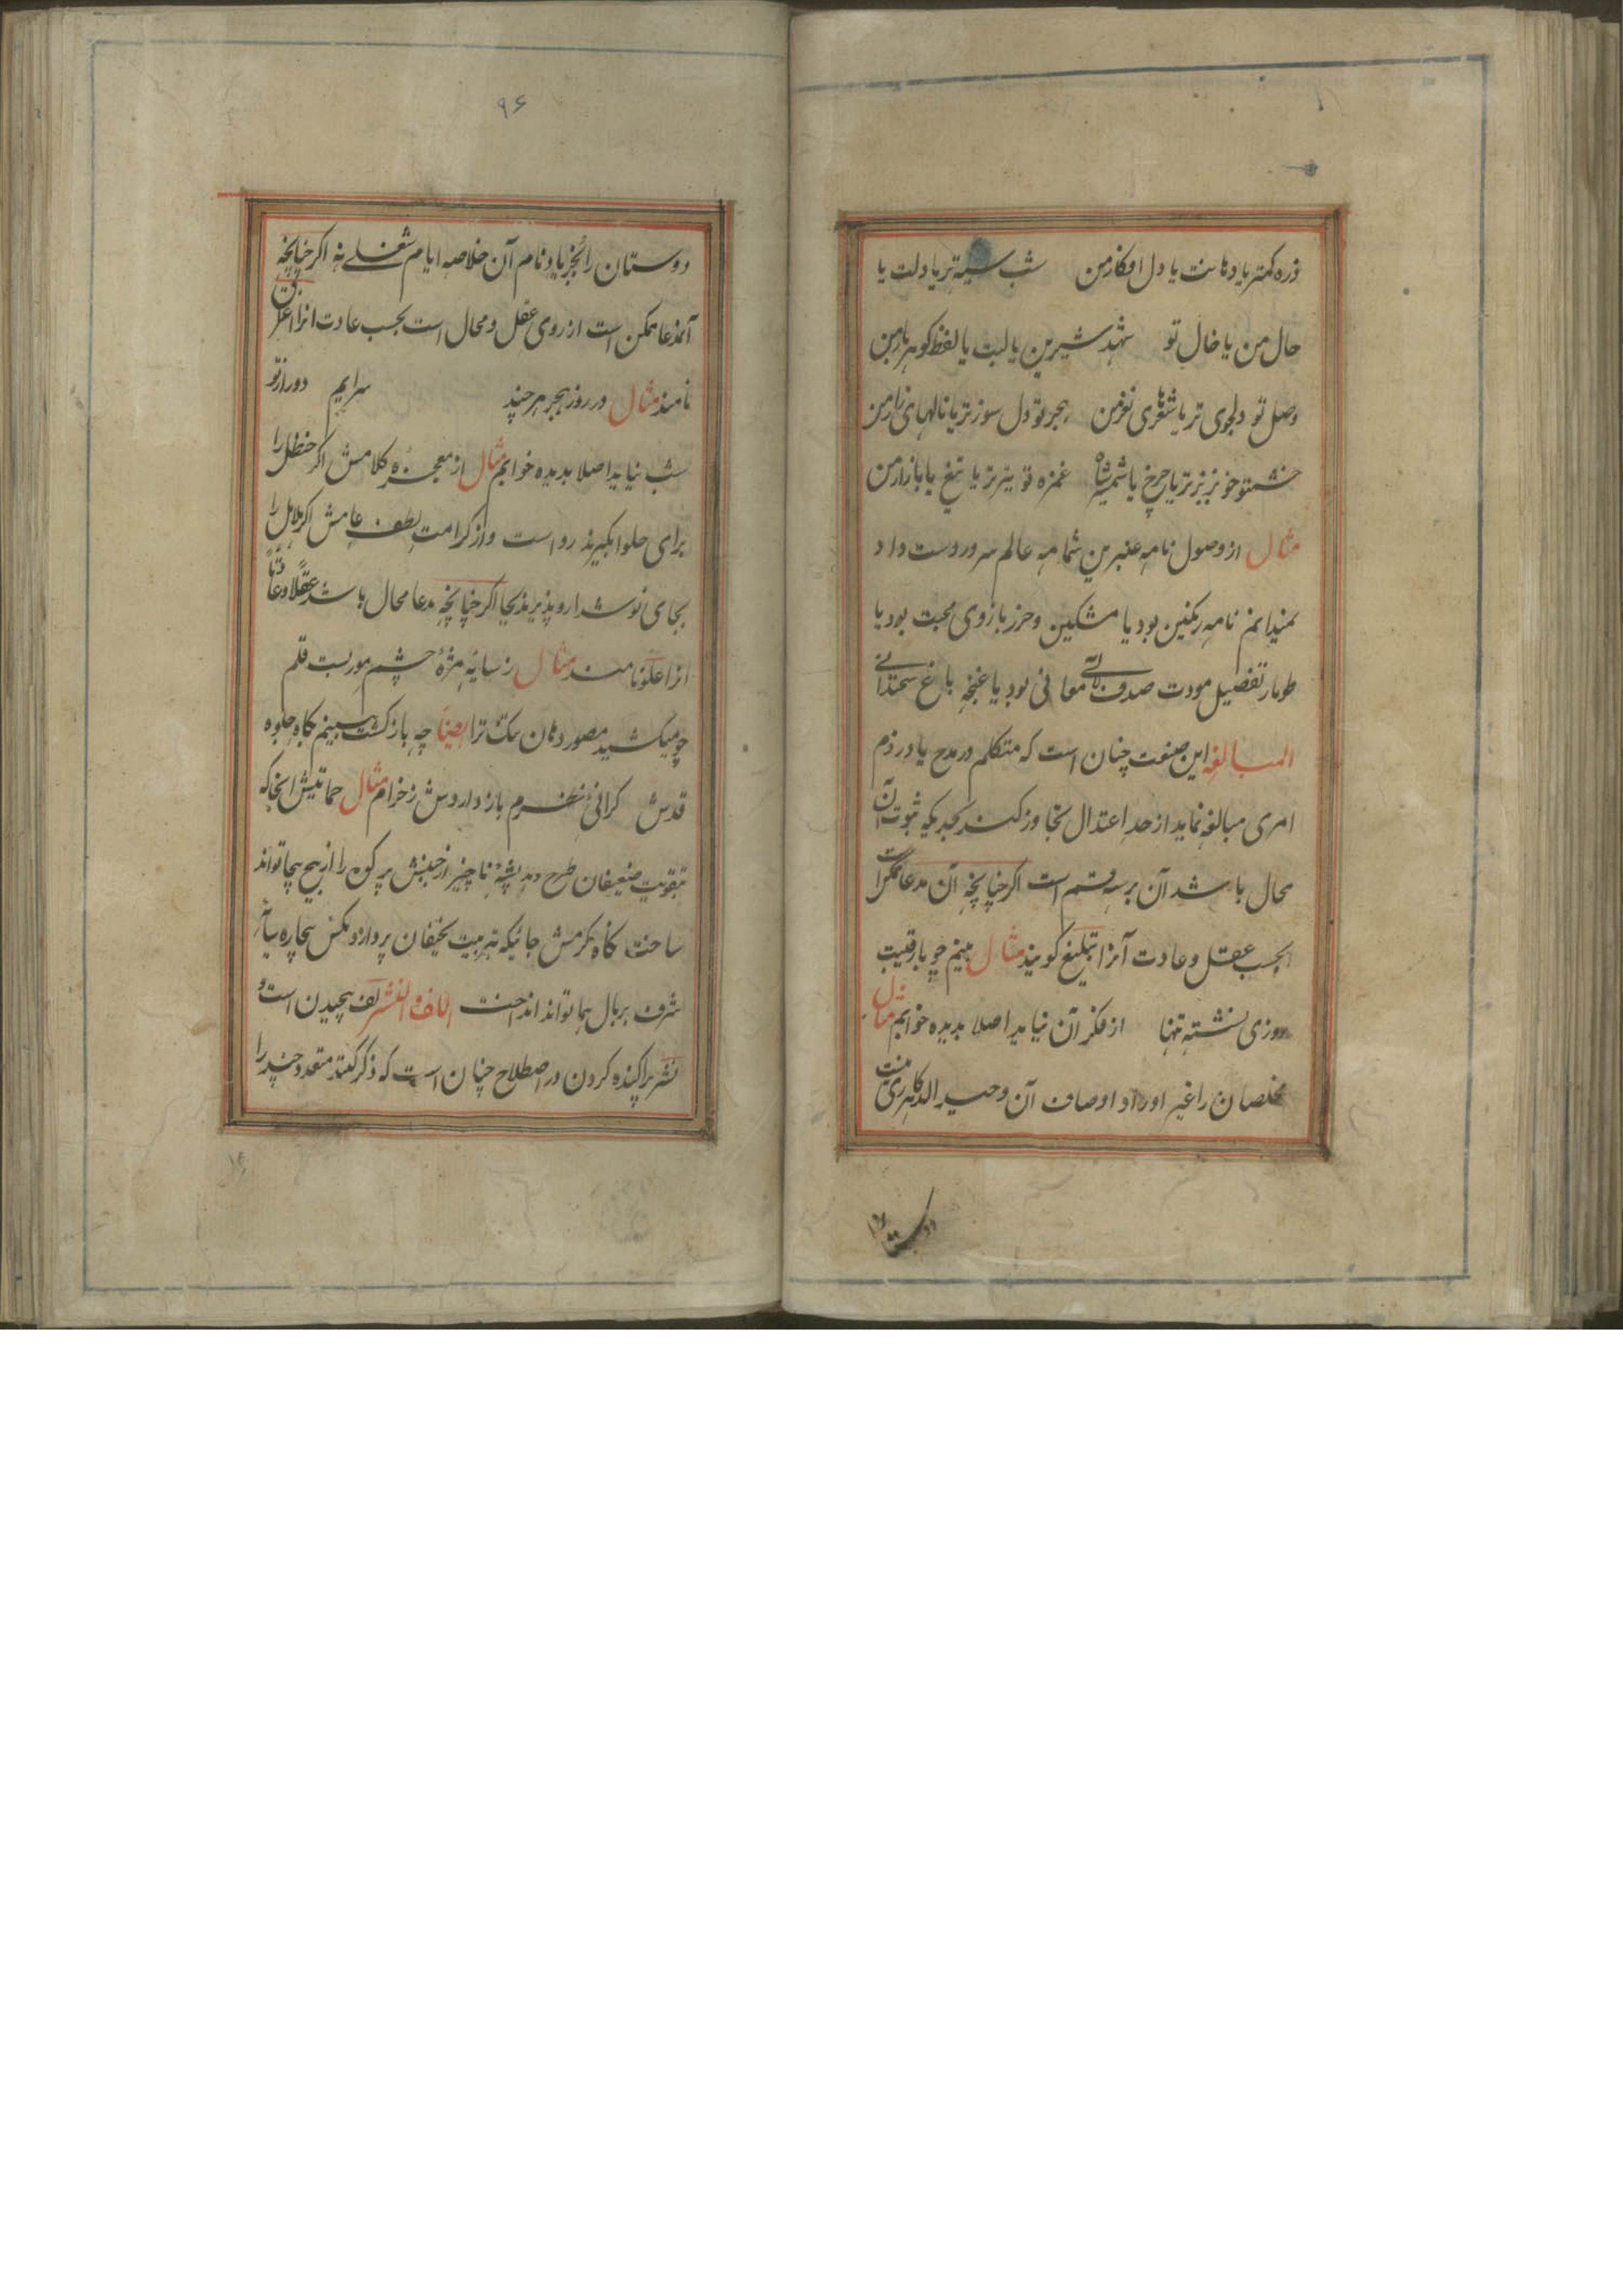 ذره کمتر یا دهانت یا دل افکار من شب سیه تر یا دلت یا
حال من یا خال تو شهد شیرین یا لبت یا لفظ کوهر بار من
وصل تو دلجوی تر یا شعرهای نغز من هجر تو دل سوز تر یا نالهای زار من
خشم تو خونریز تر یا چرخ یا شمشیر شاه غمزه تو تیزتر یا تیغ یا بازار من
مثال از وصول نامه عنبرین شمامه عالم سرور دست داد
نمیدانم نامه رنکین بود یا مشکین و حرز بازوی محبت بود یا
طومار تفصیل مودت صدف لآلی معانی بود یا غنچه باغ سخندانی
المبالغه این صنعت چنان است که متکلم در مدح یا در ذم
امری مبالغه نماید از حد اعتدال تجاوز کند بحدیکه ثبوت آن
محال باشد آن بر سه قسم است اکر چنانچه آن مدعا ممکن است
بحسب عقل و عادت آنرا تبلیغ کویند مثال بینم چو با رقیبت
روزی نشسته تنها از فکر آن نیاید اصلا بدیده خوابم مثال
مخلصان را غیر اوراد اوصاف آن وحید الدهر کاری نیست
دوستا
۹۶
دوستان را بجز یاد نام آن خلاصه ایام شغلی نه اکر چنانچه
آنمدعا ممکن است از روی عقل و محال است بحسب عادت انرا اغراق
نامند مثال در روز هجر هر چند سرایم دور از تو
شب نیاید اصلا بدیده خوابم مثال از معجزه کلامش اکر حنظل را
برای حلوا بکیرند رواست و از کرامت لطف عامش اکر هلاهل را
بجای نوشدارو پذیرند بجا اکر چنانچه مدعا محال باشد عقلا و عادتا
انرا غلو نامند مثال ز سایه مژهٔ چشم مور بست قلم
چو میکشید مصور دهان تنک ترا ایضا چه باز کشت ببینم کاه جلوه
قدش کرانی نظرم باز داردش ز خرام مثال حمایتش انجا که
تقویت ضعیفان طرح دهد پشهٔ ناچیز از جنبش پر کوه را از بیخ بیجا تواند
ساخت کاه کرمش جائیکه تربیت نحیفان پردازد مکس بیچاره سایهٔ
شرف بر بال هما تواند انداخت اللف و النشر لف پیچیدن است و
نشر پراکنده کردن در اصطلاح چنان است که ذکر کنند متعدد چند را